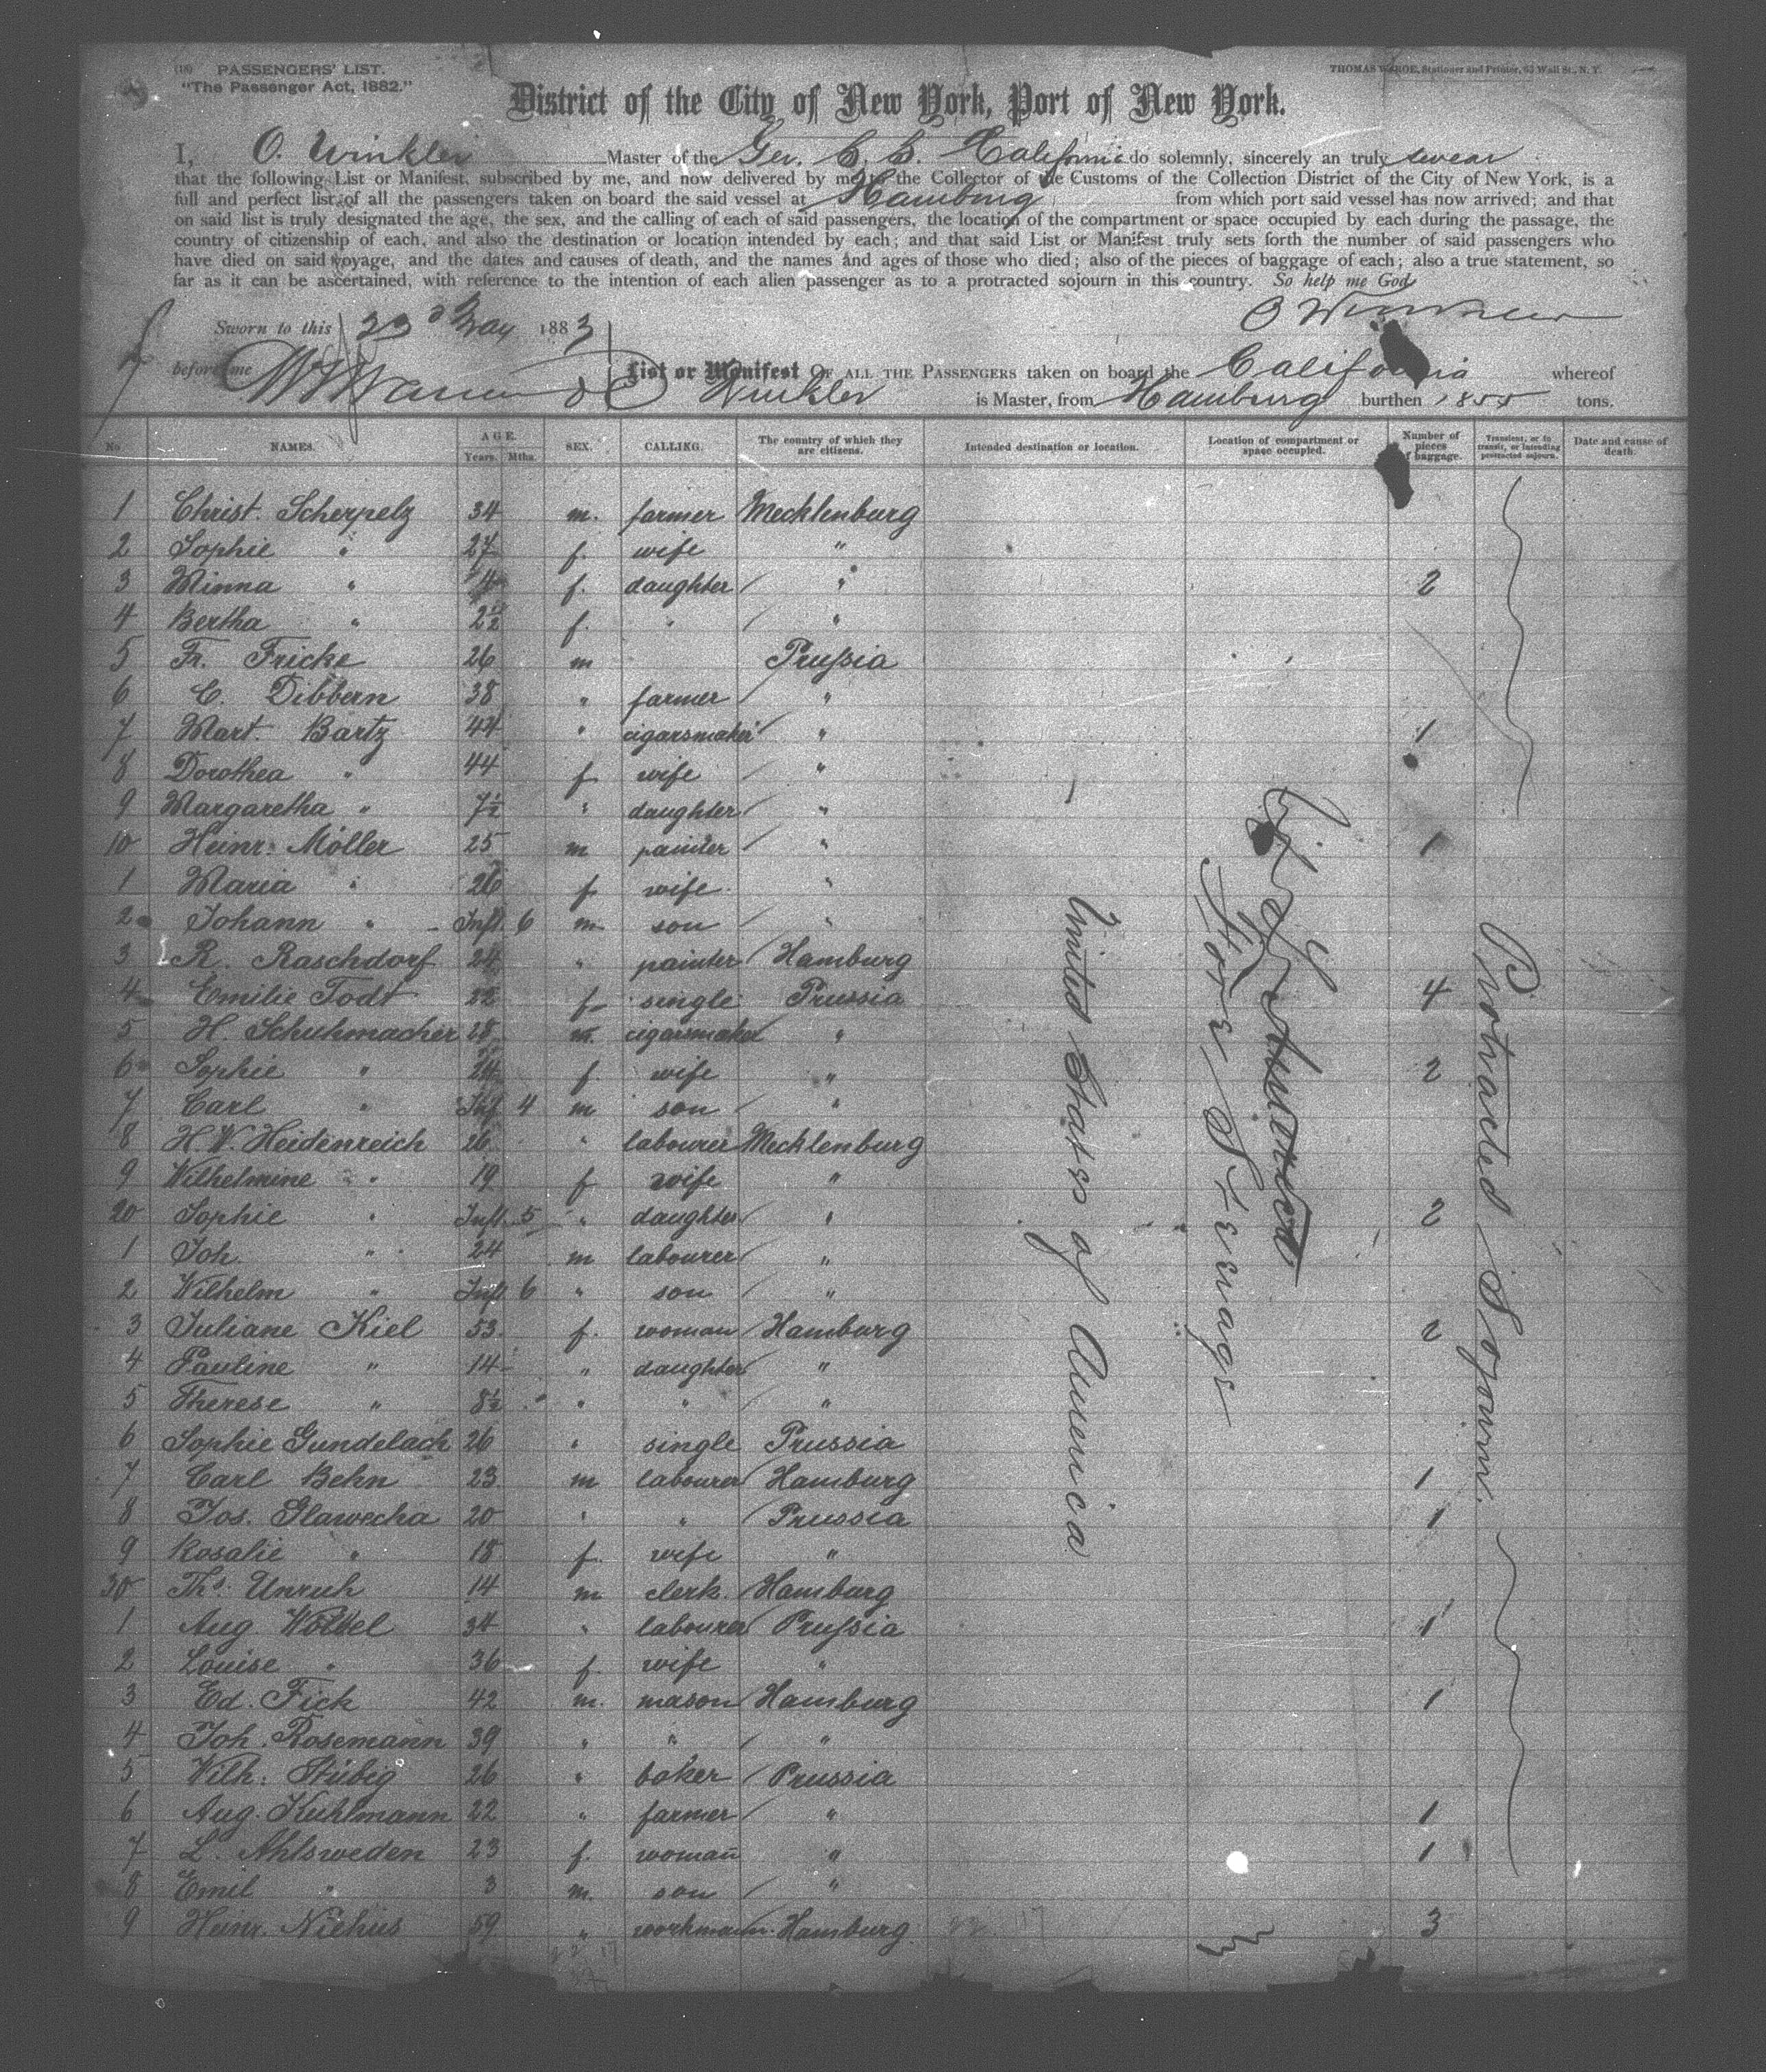 (18) PASSENGERS' LIST.
"The Passenger Act, 1882."
THOMAS Stationer and Printer, 63 Wall St., N. Y.
District of the City of New York, Port of New York.
I, O. Winkler Master of the Ger. S. S. California do solemnly, sincerely an truly swear
that the following List or Manifest, subscribed by me, and now delivered by me to the Collector of the Customs of the Collection District of the City of New York, is a
full and perfect list of all the passengers taken on board the said vessel at Hamburg from which port said vessel has now arrived; and that
on said list is truly designated the age, the sex, and the calling of each of said passengers, the location of the compartment or space occupied by each during the passage, the
country of citizenship of each, and also the destination or location intended by each; and that said List or Manifest truly sets forth the number of said passengers who
have died on said voyage, and the dates and causes of death, and the names and ages of those who died; also of the pieces of baggage of each; also a true statement, so
far as it can be ascertained, with reference to the intention of each alien passenger as to a protracted sojourn in this country. So help me God
O Winkler
Sworn to this 23d May 1883
before me
List or Manifest OF ALL THE PASSENGERS taken on board the California whereof
O Winkler is Master, from Hamburg burthen 1855 tons.
No NAMES. AGE. Years. Mths. SEX. CALLING. The country of which they are citizens. Intended destination or location. Location of compartment or space occupied. Number of pieces of baggage. Transient, or in transit, or intending protracted sojourn. Date and cause of death.
1 Christ. Scherpelz 34 m. farmer Mecklenburg
2 Sophie " 27 f. wife "
3 Minna " 4 f. daughter " 2
4 Bertha " 2½ f. " "
5 Fr. Fricke 26 m Prußia
6 C. Dibbern 38 " farmer "
7 Mart. Bartz 44 " cigarsmaker " 1
8 Dorothea " 44 f wife "
9 Margaretha " 7½ " daughter "
10 Heinr. Möller 25 m painter " 1
1 Maria " 26 f wife "
2 Johann " Inft. 6 m son "
3 R. Raschdorf 24 " painter Hamburg
4 Emilie Todt 22 f single Prussia 4
5 H. Schuhmacher 28 m. cigarsmaker "
6 Sophie " 24 f. wife " 2
7 Carl " Inf 4 m son "
8 H. W. Heidenreich 26 " labourer Mecklenburg
9 Wilhelmine " 19 f wife "
20 Sophie " Inft. 5 " daughter " 2
1 Joh. " 24 m labourer "
2 Wilhelm " Inft 6 " son "
3 Juliane Kiel 53 f. woman Hamburg 2
4 Pauline " 14 " daughter "
5 Therese " 8½ " " "
6 Sophie Gundelach 26 " single Prussia
7 Carl Behn 23 m labourer Hamburg 1
8 Jos. Glawecha 20 " " Prussia 1
9 Rosalie " 18 f. wife "
30 Ths. Unruh 14 m clerk. Hamburg
1 Aug. 34 " labourer Prußia 1
2 Louise " 36 f wife "
3 Ed. Fick 42 m. mason Hamburg 1
4 Joh. Rosemann 39 " " "
5 Wilh. Stübig 26 " baker Prussia
6 Aug. Kuhlmann 22 " farmer " 1
7 L. Ahlsweden 23 f. woman " 1
8 Emil " 3 m. son "
9 Heinr. Niehus 59 " workmann. Hamburg. 3
United States of America
Fore Steerage
Protracted Sojourn.